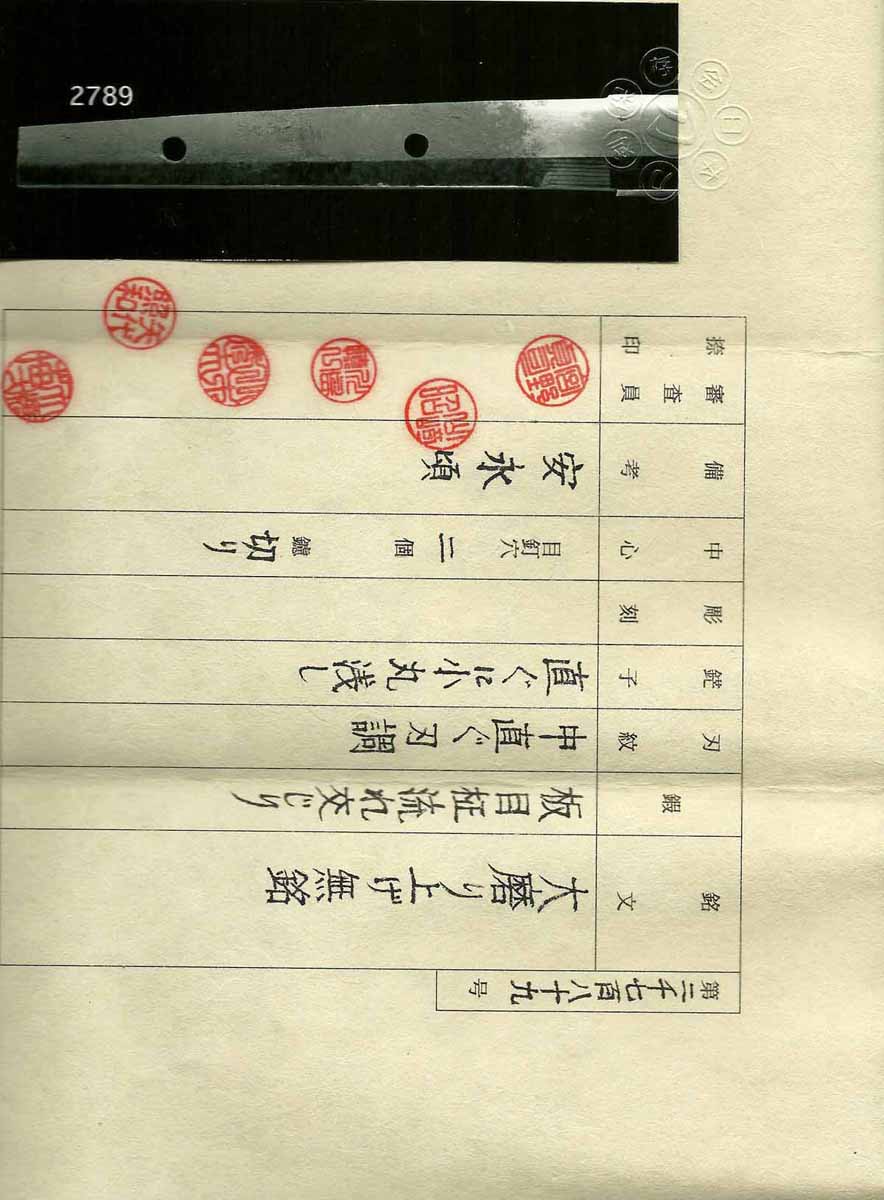 2789
第二千七百八十九号
銘文
大磨り上げ無銘
鍛
板目柾流れ交じり
刃紋
中直ぐ刃調
鋩子
直ぐに小丸浅し
彫刻
中心
目釘穴 二個 鑢 切り
備考
安永頃
審査員
捺印